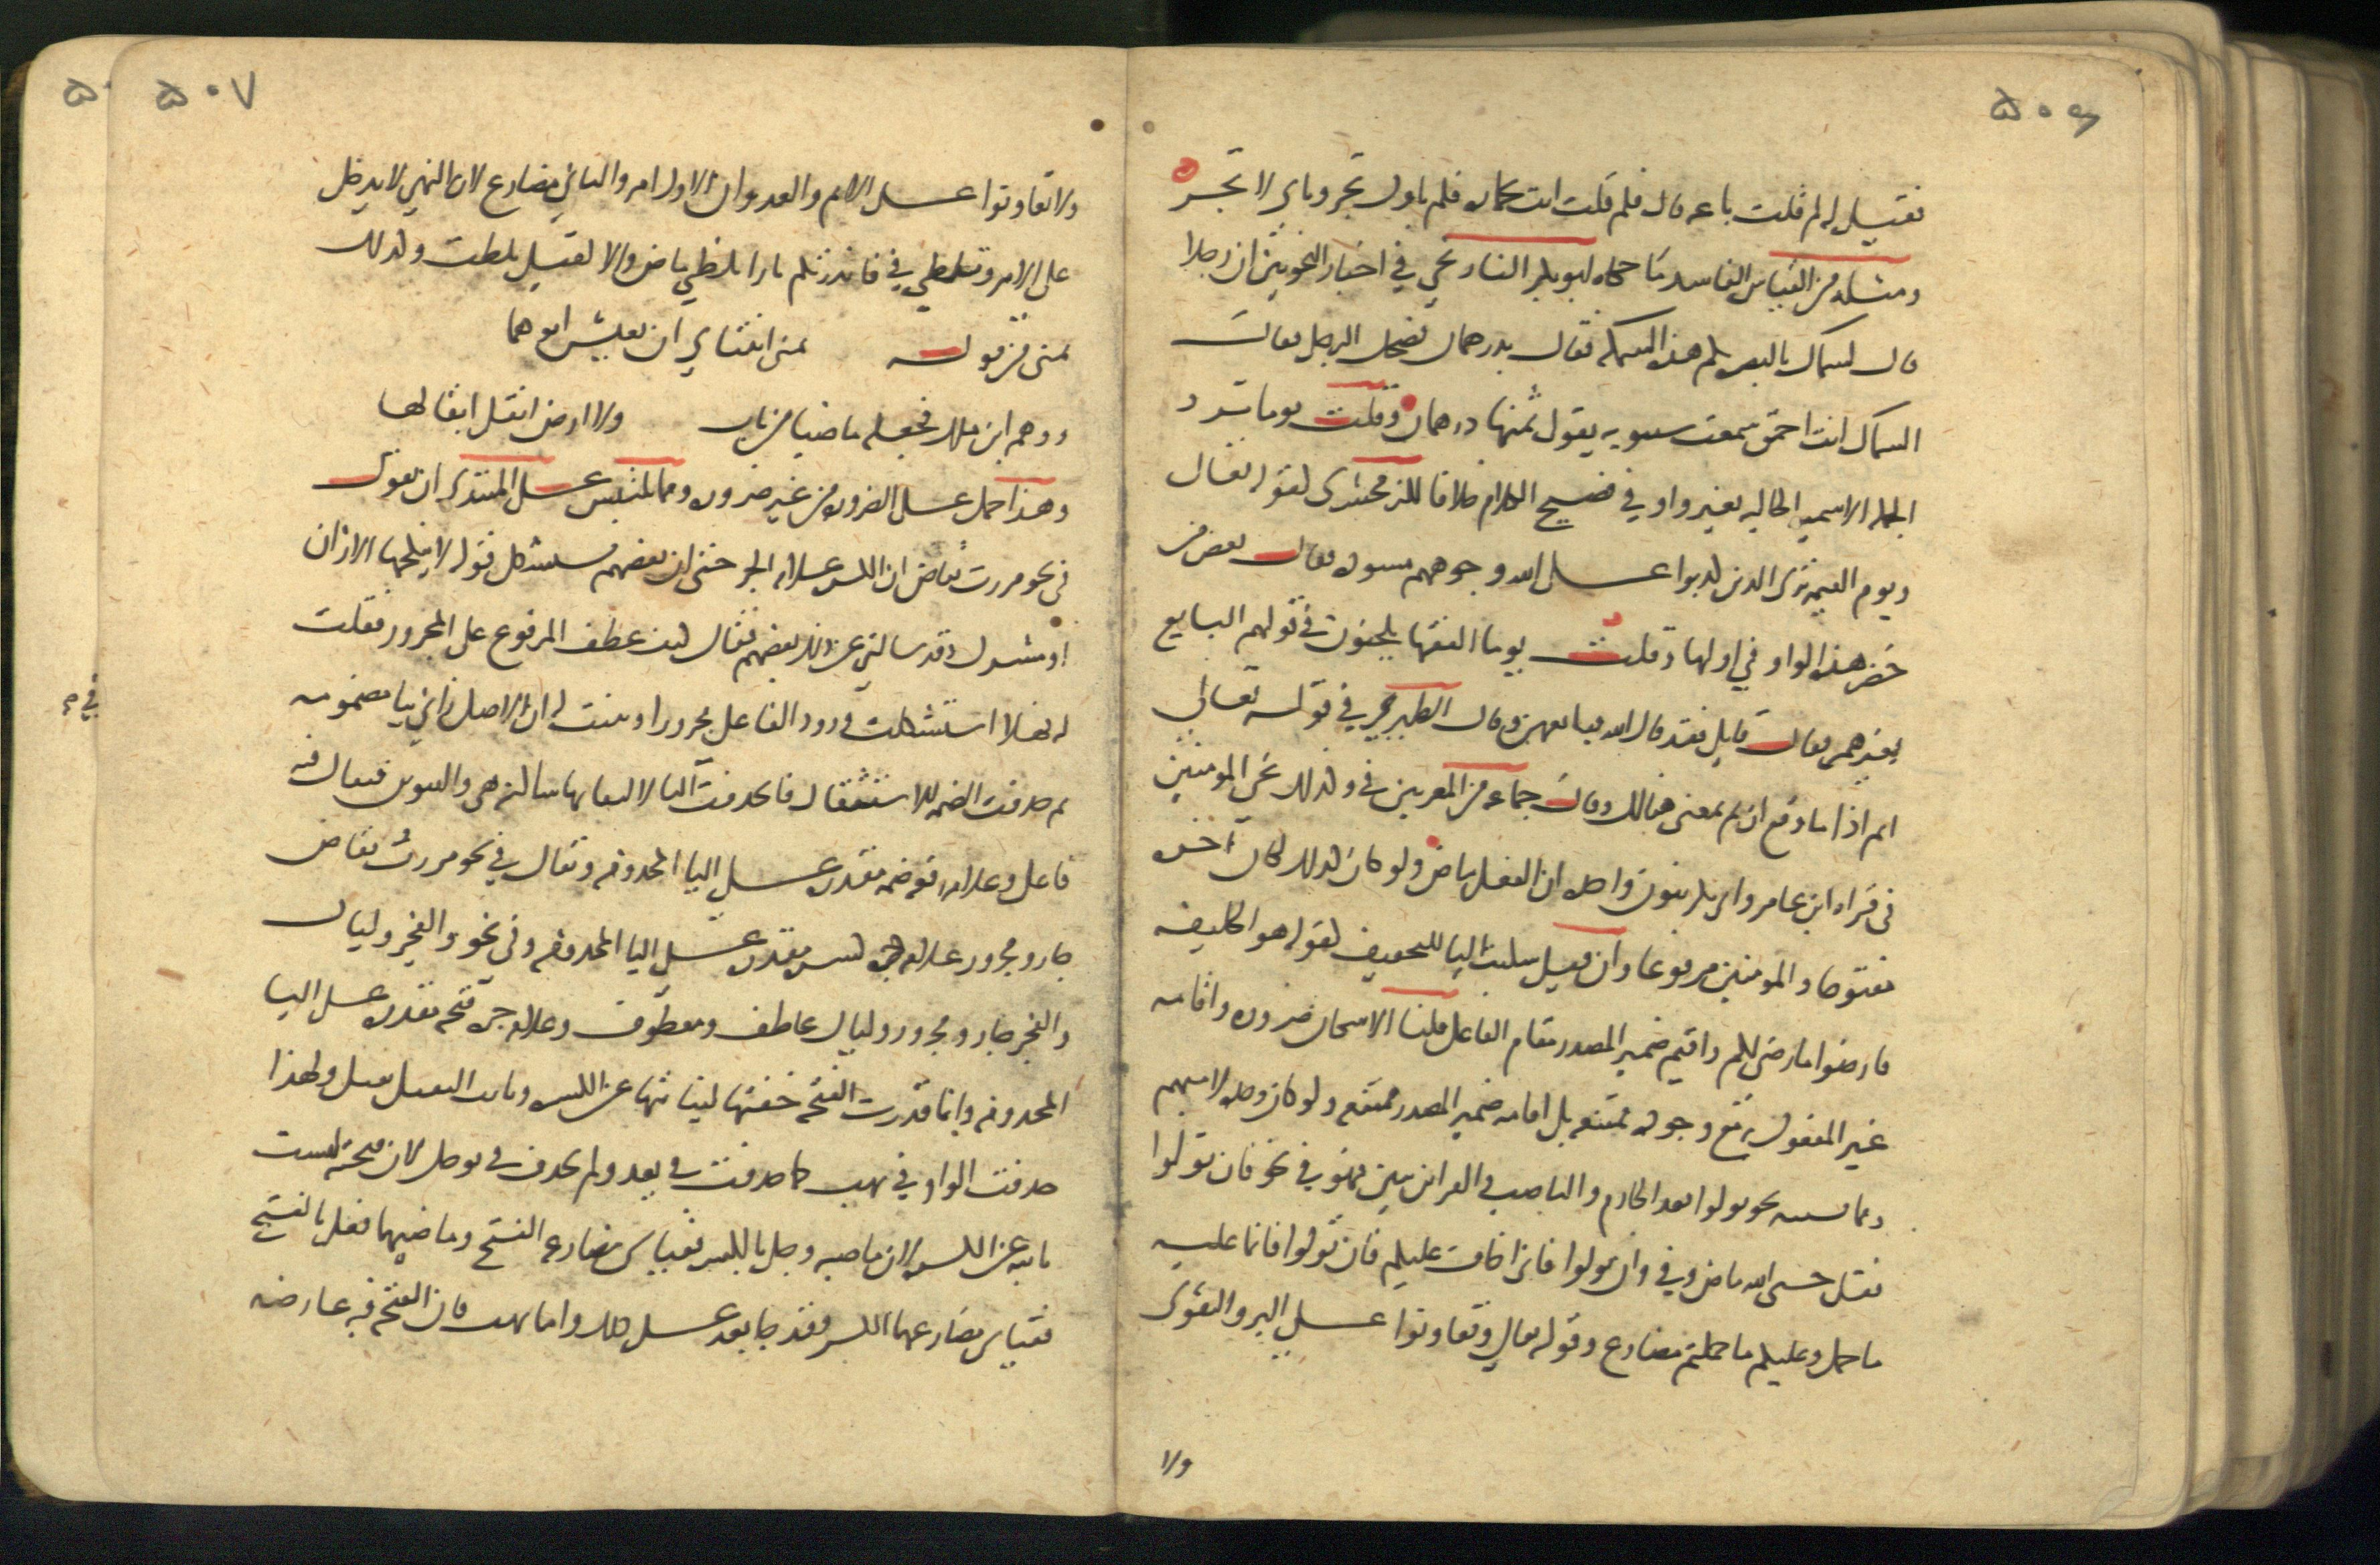 ٥٠٦
فقيل له لم قلت باعه قال فلم قلت انت بحمار فلم باوك تجر وباي لا تجر
ومثله من القياس الفاسد ما حكاه ابو بكر التاريخي في اخبار النحويين ان رجلا
قال لسماك بالبصره بكم هذه السمكه فقال بدرهمان فضحك الرجل فقال
السماك انت احمق سمعت سيبويه يقول ثمنها درهمان وقلت يوما ترد
الجمله الاسميه الحاليه بغير واو في فصيح الكلام خلافا للزمخشري كقوله تعالى
ويوم القيمه ترى الذين كذبوا على الله وجوههم مسوده فقال بعض من
حضر هذه الواو في اولها وقلت يوما الفقها يلحنون في قولهم البايع
بغير همز فقال قايل فقد قال الله فبايعهن وقال الطبري في قوله تعالى
اثم اذا ما وقع ان ثم بمعنى هنالك وقال جماعه من المعربين في وكذلك نجي المومنين
في قراه ابن عامر وابي بكر بنون واحده ان الفعل ماض ولو كان كذلك لكان اخره
مفتوحا والمومنين مرفوعا وان قيل سكنت اليا للتخفيف كقوله هو الخليفه
فارضوا ما رضى لكم واقيم ضمير المصدر مقام الفاعل قلنا الاسكان ضروره واقامه
غير المفعول به مع وجوده ممتنعه بل اقامه ضمير المصدر ممتنع ولو كان وحده لانه مبهم
ومما يشتبه نحو تولوا بعد الجازم والناصب والقراين تبين فهو في نحو فان تولوا
فقل حسبي الله ماض وفي وان تولوا فاني اخاف عليكم فان تولوا فانما عليه
ما حمل وعليكم ما حملتم مضارع وقوله تعالى وتعاونوا على البر والتقوى
ولا
٥٠٧
ولا تعاونوا على الاثم والعدوان الاول امر والثاني مضارع لان النهي لا يدخل
على الامر وتلظى في فانذرتكم نارا تلظى ماض والا لقيل تلظت وكذلك
تمنى من قوله تمنى ابنتاي ان يعيش ابوهما
ووهم ابن مالك فجعله ماضيا من باب ولا ارض ابقل ابقالها
وهذا حمل على الضروره من غير ضروره ومما يلتبس على المبتدي ان تقول
في نحو مررت بقاض ان الكسره علامه الجر حتى ان بعضهم يستشكل قوله لا ينكحها الا زان
او مشرك وقد سالني عن ذلك بعضهم فقال كيف عطف المرفوع على المجرور فقلت
له فهلا استشكلت ورود الفاعل مجرورا وبينت له ان الاصل زاني بيا مضمومه
ثم حذفت الضمه للاستثقال فحذفت اليا لالتقايها ساكنه هي والتنوين فيقال فيه
فاعل وعلامه رفعه ضمه مقدره على اليا المحذوفه ويقال في نحو مررت بقاض
جار ومجرور علامه جره كسره مقدره على اليا المحذوفه وفي نحو والفجر وليال
والفجر جار ومجرور وليال عاطف ومعطوف وعلامه جره فتحه مقدره على اليا
المحذوفه وانما قدرت الفتحه مع خفتها لنيابتها عن الكسره ونايب الثقيل ثقيل ولهذا
حذفت الواو في يهب كما حذفت في يعد ولم تحذف في يوجل لان فتحته ليست
نايبه عن الكسره لان ماضيه وجل بالكسر فقياس مضارعه الفتح وماضيهما فعل بالفتح
فقياس مضارعهما الكسر وقد جا يعد على ذلك واما يهب فان الفتحه فيه عارضه